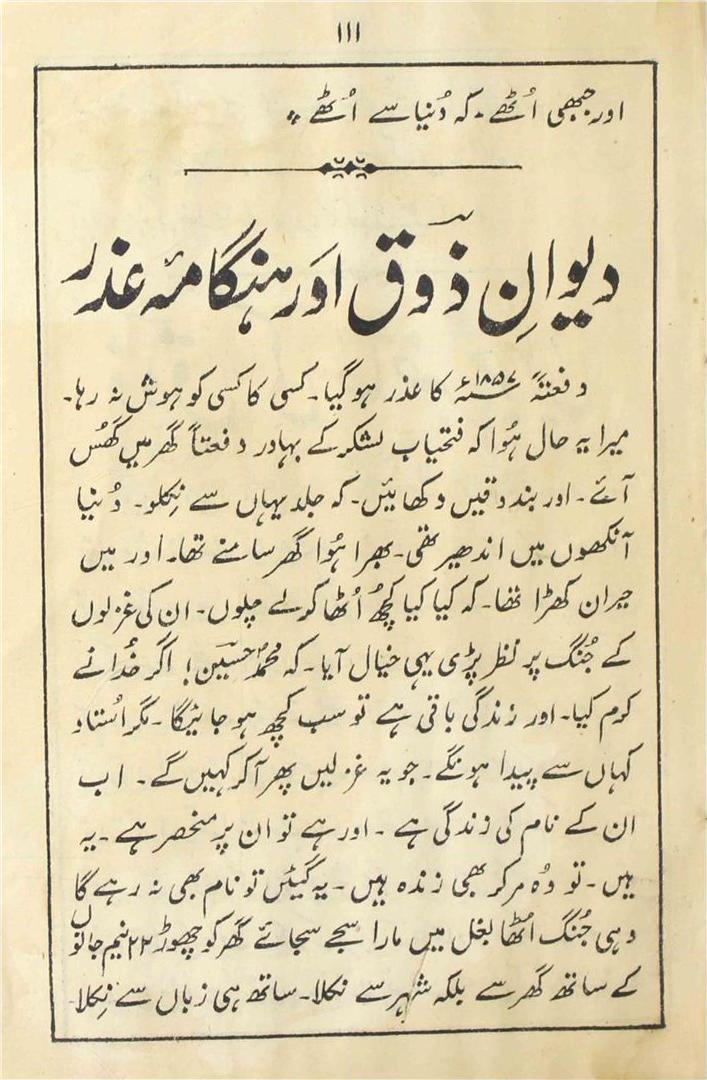 ۱۱۱
اور جبھی اُٹھے۔ کہ دُنیا سے اُٹھے ٭
دیوانِ ذوق اور ہنگامۂ غدر
دفعتہً ۱۸۵۷ء کا غدر ہو گیا۔ کسی کا کسی کو ہوش نہ رہا۔
میرا یہ حال ہُوا کہ فتحیاب لشکر کے بہادر دفعتاً گھر میں گھُس
آئے۔ اور بندوقیں دکھائیں۔ کہ جلد یہاں سے نِکلو۔ دُنیا
آنکھوں میں اندھیر تھی۔ بھرا ہُوا گھر سامنے تھا۔ اور میں
حیران کھڑا تھا۔ کہ کیا کیا کچھُ اُٹھا کر لے چلوں۔ ان کی غزلوں
کے جُنگ پر نظر پڑی یہی خیال آیا۔ کہ محمدؐ حسین! اگر خُدا نے
کرم کیا۔ اور زندگی باقی ہے تو سب کچھ ہو جائیگا۔ مگر اُستاد
کہاں سے پیدا ہونگے۔ جو یہ غزلیں پھر آ کر کہیں گے۔ اب
ان کے نام کی زندگی ہے۔ اور ہے تو ان پر منحصر ہے۔ یہ
ہیں۔ تو وُہ مر کر بھی زندہ ہیں۔ یہ گئیں تو نام بھی نہ رہے گا
وہی جُنگ اُٹھا بغل میں مارا سجے سجائے گھر کو چھوڑ ۲۲ نیم جانوں
کے ساتھ گھر سے بلکہ شہر سے نکلا۔ ساتھ ہی زباں سے نِکلا۔